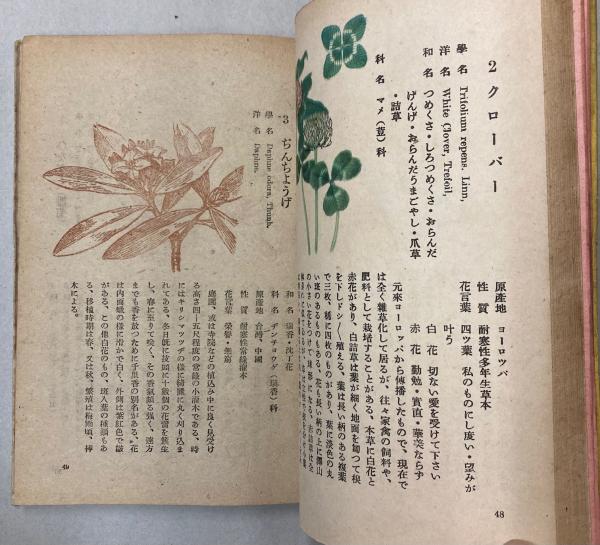 2 クローバー
學名 Trifolium repens. Linn,
洋名 White Clover, Trefoil,
和名 つめくさ・しろつめくさ・おらんだ
げんげ・おらんだうまごやし・爪草
・詰草
科名 マメ(荳)科
原產地 ヨーロッパ
性質 耐寒性多年生草本
花言葉 四ツ葉 私のものにし度い・望みが
叶う
白花 切ない愛を受けて下さい
赤花 勤勉・實直・華美ならず
元來ヨーロッパから傳播したもので、現在で
は全く雜草化して居るが、往々家禽の飼料や、
肥料として栽培することがある。本草に白花と
赤花があり、白詰草は葉が細く地面を匐つて
を下しドシ〳〵殖える。葉は長い柄のある複葉
で三枚、稀に四枚のものがあり、葉に淡色の丸
い斑のあるものもある。花も長い柄の上に澤山
の小さい花をつけて球形になる。赤詰草は全
48
3 ぢんちようげ
學名 Daphne odora, Thunb.
洋名 Daphne.
和名 瑞香・沈丁花
科名 ヂンチョウゲ(瑞香)科
原產地 台灣、中國
性質 耐寒性常綠灌木
花言葉 榮譽・無窮
庭園、或は寺院などの植込み中に良く見受け
る高さ四−五尺程度の常綠の小灌木である。時
にはキリシマツツヂの樣に綺麗に丸く刈り込ま
れてある。冬月既に枝頭に十數個の花蕾を簇生
し、春に至りて咲く、その香氣頗る强く、遠方
までも香を放つために千里香の別名がある。花
は內面蠟の樣に滑かで白く、外側は紫紅色で皺
がある、この他白花のもの、斑入葉の種類もあ
る、移植時期は春、又は秋、繁殖は梅雨頃、揷
木による。
49